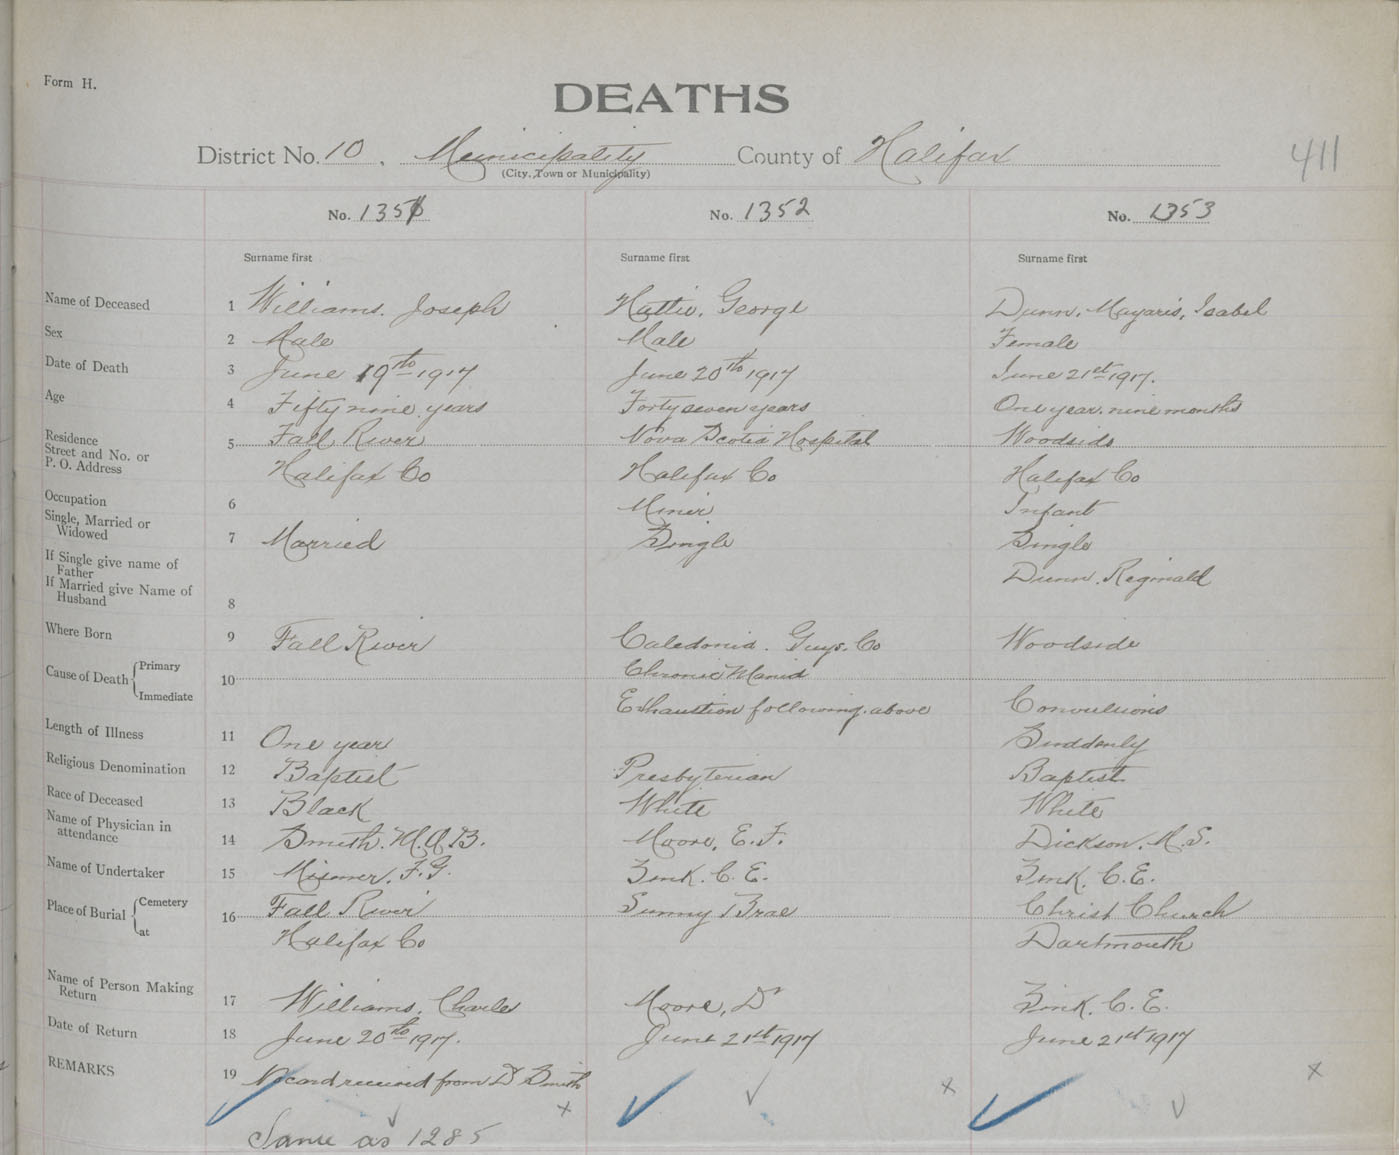 Form H.
DEATHS
District No. 10, Municipality County of Halifax
(City, Town or Municipality)
411
No. 1351 No. 1352 No. 1353
Surname first Surname first Surname first
Name of Deceased 1 Williams, Joseph Hattie, George Dunn, Mayaris, Isabel
Sex 2 Male Male Female
Date of Death 3 June 19th 1917 June 20th 1917 June 21st 1917.
Age 4 Fifty nine years Forty seven years One year nine months
Residence 5 Fall River Nova Scotia Hospital Woodside
Street and No. or
P. O. Address Halifax Co Halifax Co Halifax Co
Occupation 6 Miner Infant
Single, Married or
Widowed 7 Married Single Single
If Single give name of
Father Dunn, Reginald
If Married give Name of
Husband 8
Where Born 9 Fall River Caledonia. Guys. Co Woodside
Cause of Death Primary 10 Chronic Mania
Immediate Exhaustion following above Convulsions
Length of Illness 11 One year Suddenly
Religious Denomination 12 Baptist Presbyterian Baptist
Race of Deceased 13 Black White White
Name of Physician in
attendance 14 Smith, M.A.B. Moore, E. F. Dickson, M.S.
Name of Undertaker 15 Misener, F.G. Zink, C. E. Zink, C. E.
Place of Burial Cemetery 16 Fall River Sunny Brae Christ Church
at Halifax Co Dartmouth
Name of Person Making
Return 17 Williams, Charles Moore, Dr Zink, C. E.
Date of Return 18 June 20th 1917. June 21st 1917 June 21st 1917
REMARKS 19 No card received from Dr Smith
Same as 1285